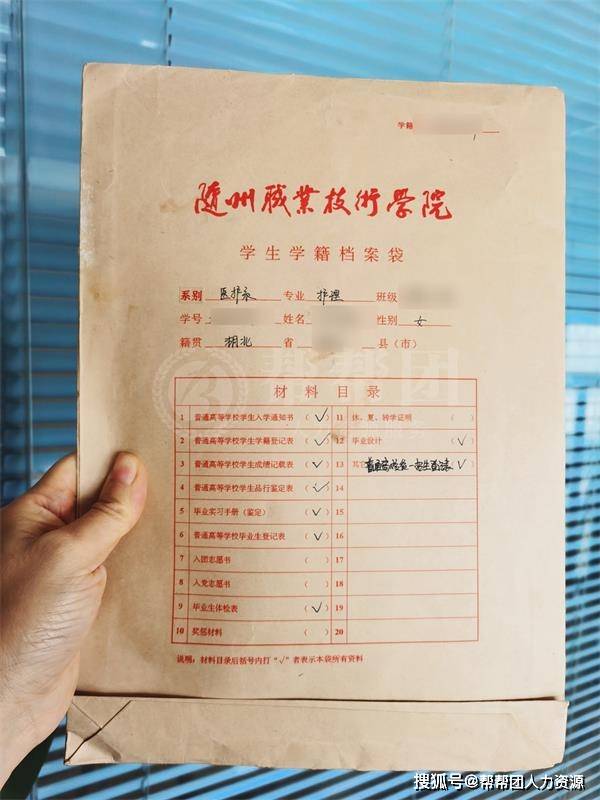 学籍
随州職業技術學院
学生学籍档案袋
系别 医护系 专业 护理 班级
学号 姓名 性别 女
籍贯 湖北 省 县（市）
帮帮团
材料目录
1 普通高等学校学生入学通知书 （√） 11 休、复、转学证明 （ ）
2 普通高等学校学生学籍登记表 （√） 12 毕业设计 （√）
3 普通高等学校学生成绩记载表 （√） 13 其它 √）
4 普通高等学校学生品行鉴定表 （√） 14
5 毕业实习手册（鉴定） （√） 15
6 普通高等学校毕业生登记表 （√） 16
7 入团志愿书 （ ） 17
8 入党志愿书 （ ） 18
9 毕业生体检表 （√） 19
10 奖惩材料 （ ） 20
说明：材料目录后括号内打“√”者表示本袋所有资料
搜狐号@帮帮团人力资源